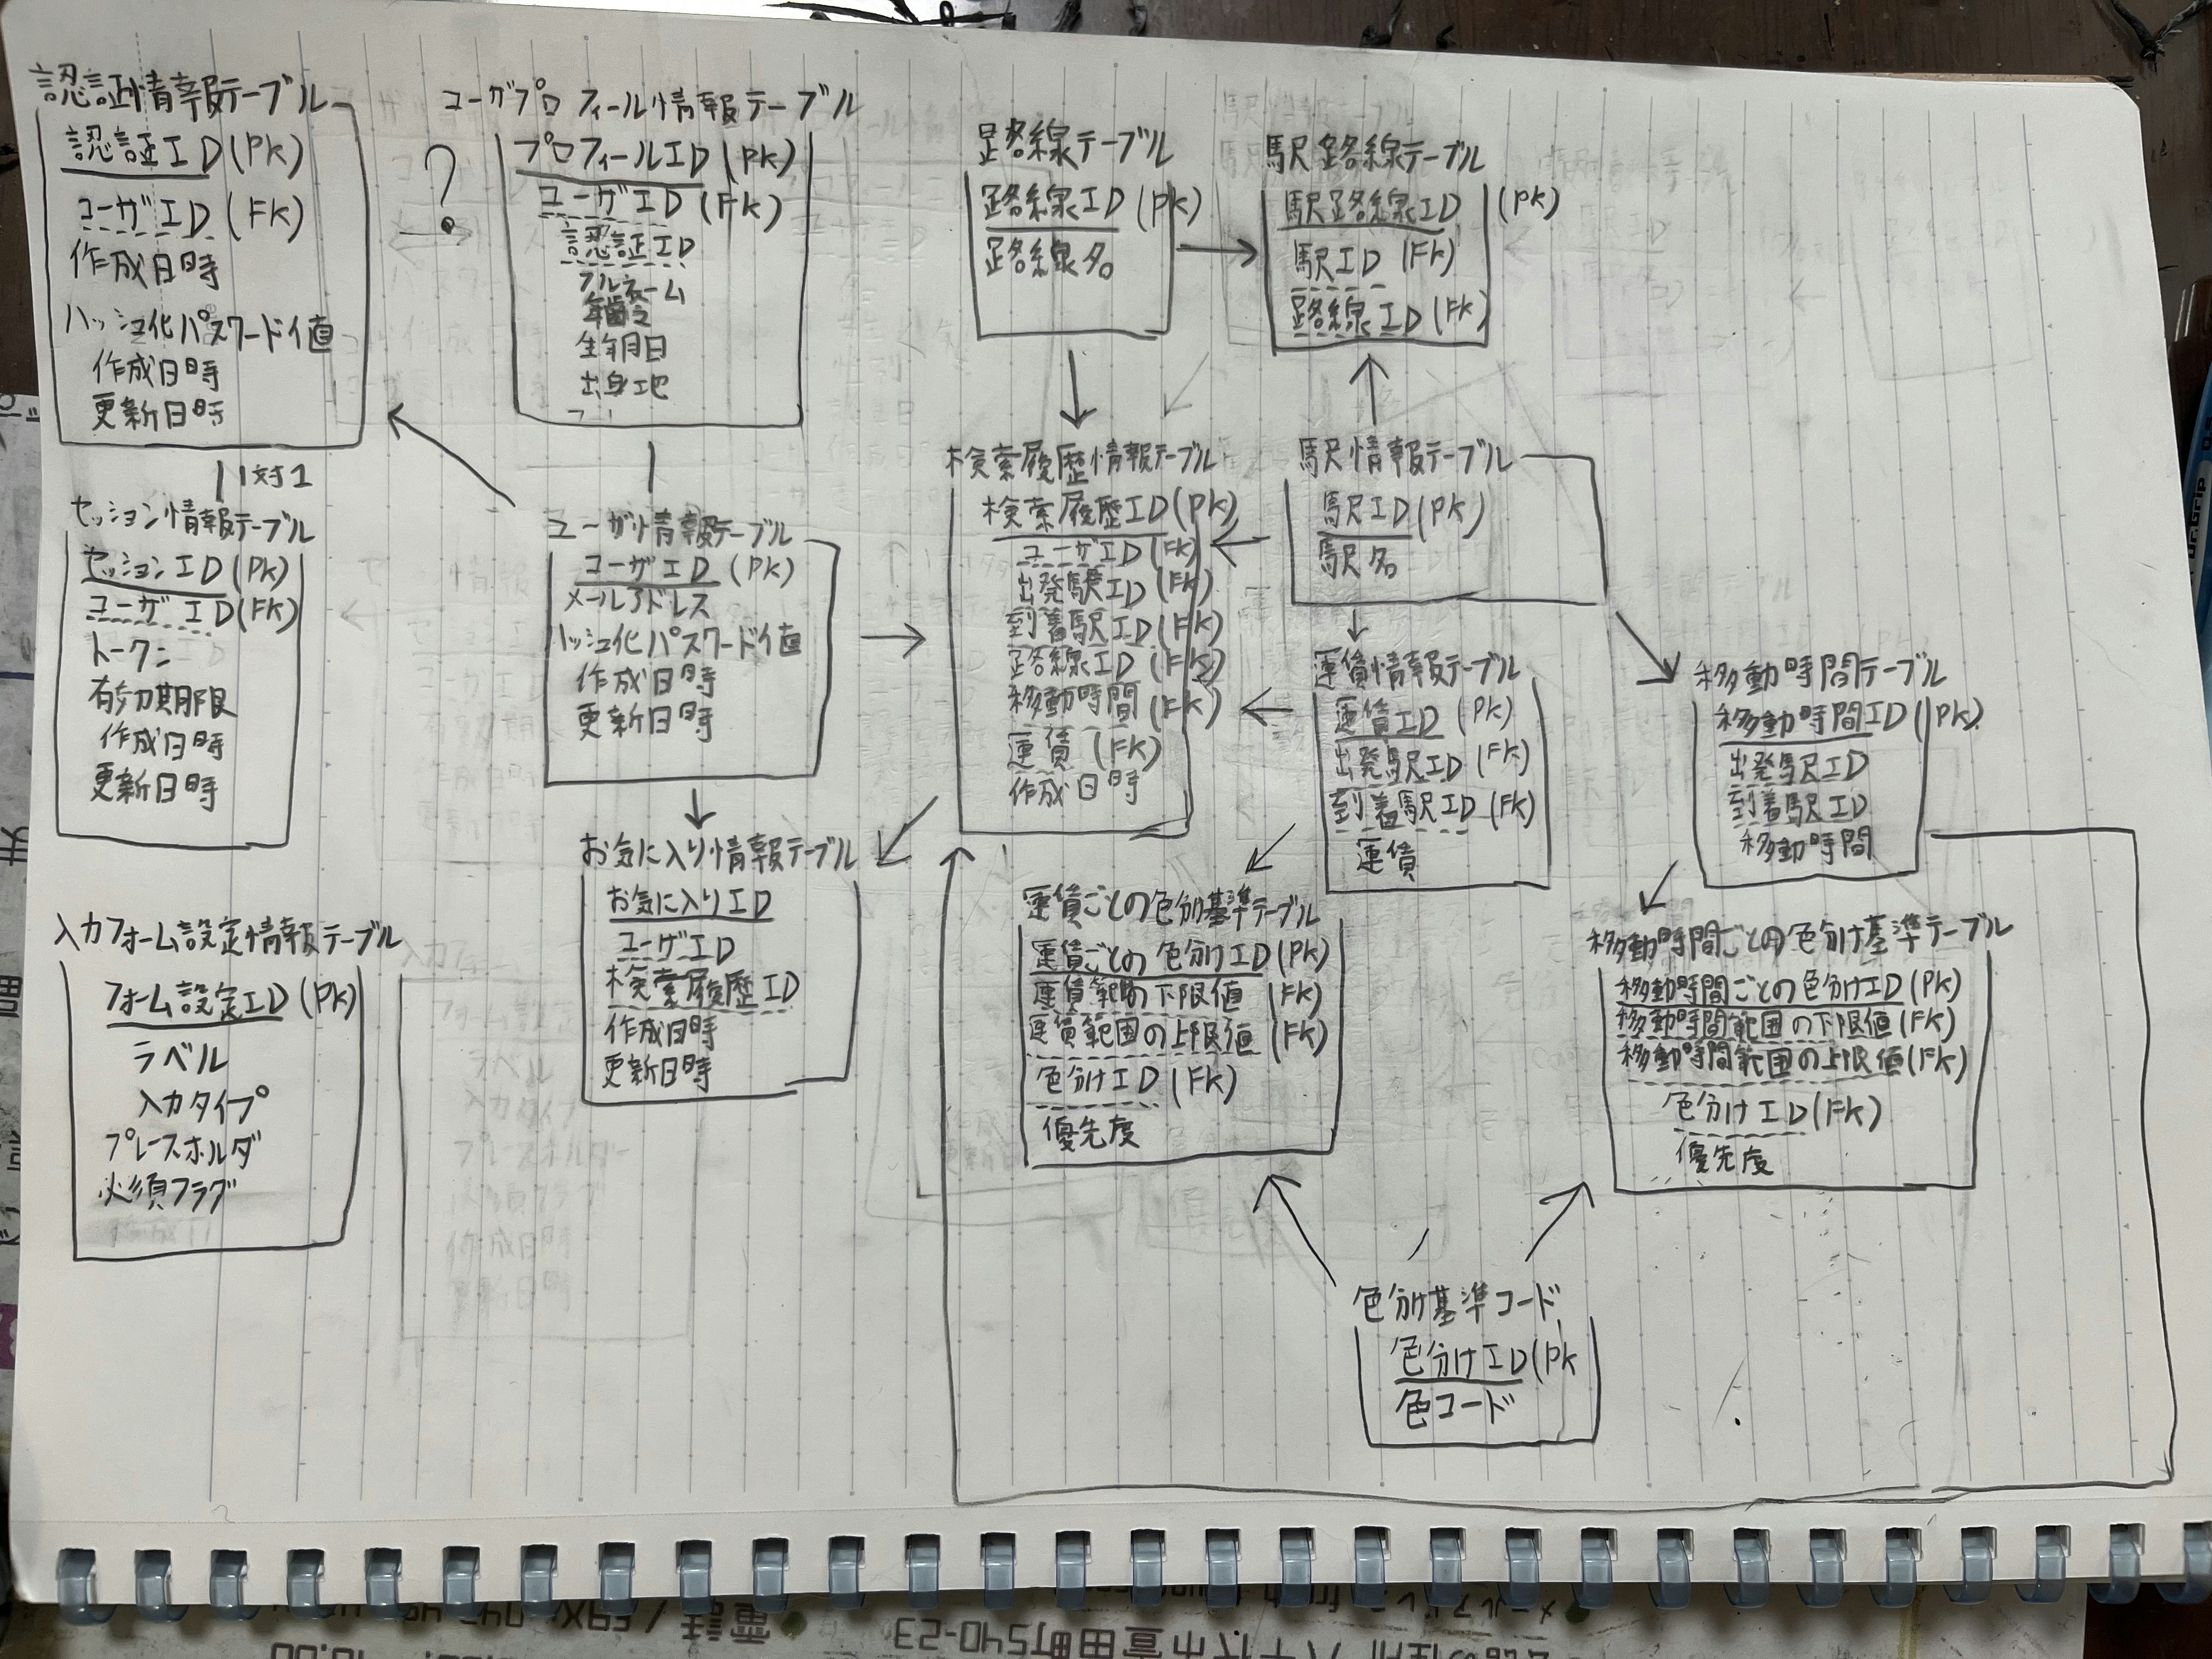 認証情報テーブル
認証ID(PK)
ユーザID(FK)
作成日時
ハッシュ化パスワード値
作成日時
更新日時
1対1
セッション情報テーブル
セッションID(PK)
ユーザID(FK)
トークン
有効期限
作成日時
更新日時
入力フォーム設定情報テーブル
フォーム設定ID(PK)
ラベル
入力タイプ
プレースホルダ
必須フラグ
?
ユーザプロフィール情報テーブル
プロフィールID(PK)
ユーザID(FK)
認証ID
フルネーム
年齢
生年月日
出身地
ユーザ情報テーブル
ユーザID(PK)
メールアドレス
ハッシュ化パスワード値
作成日時
更新日時
お気に入り情報テーブル
お気に入りID
ユーザID
検索履歴ID
作成日時
更新日時
路線テーブル
路線ID(PK)
路線名
駅路線テーブル
駅路線ID(PK)
駅ID(FK)
路線ID(FK)
検索履歴情報テーブル
検索履歴ID(PK)
ユーザID(FK)
出発駅ID(FK)
到着駅ID(FK)
路線ID(FK)
移動時間(FK)
運賃(FK)
作成日時
駅情報テーブル
駅ID(PK)
駅名
運賃情報テーブル
運賃ID(PK)
出発駅ID(FK)
到着駅ID(FK)
運賃
移動時間テーブル
移動時間ID(PK)
出発駅ID
到着駅ID
移動時間
運賃ごとの色分基準テーブル
運賃ごとの色分けID(PK)
運賃範囲の下限値(FK)
運賃範囲の上限値(FK)
色分けID(FK)
優先度
移動時間ごとの色分け基準テーブル
移動時間ごとの色分けID(PK)
移動時間範囲の下限値(FK)
移動時間範囲の上限値(FK)
色分けID(FK)
優先度
色分け基準コード
色分けID(PK
色コード